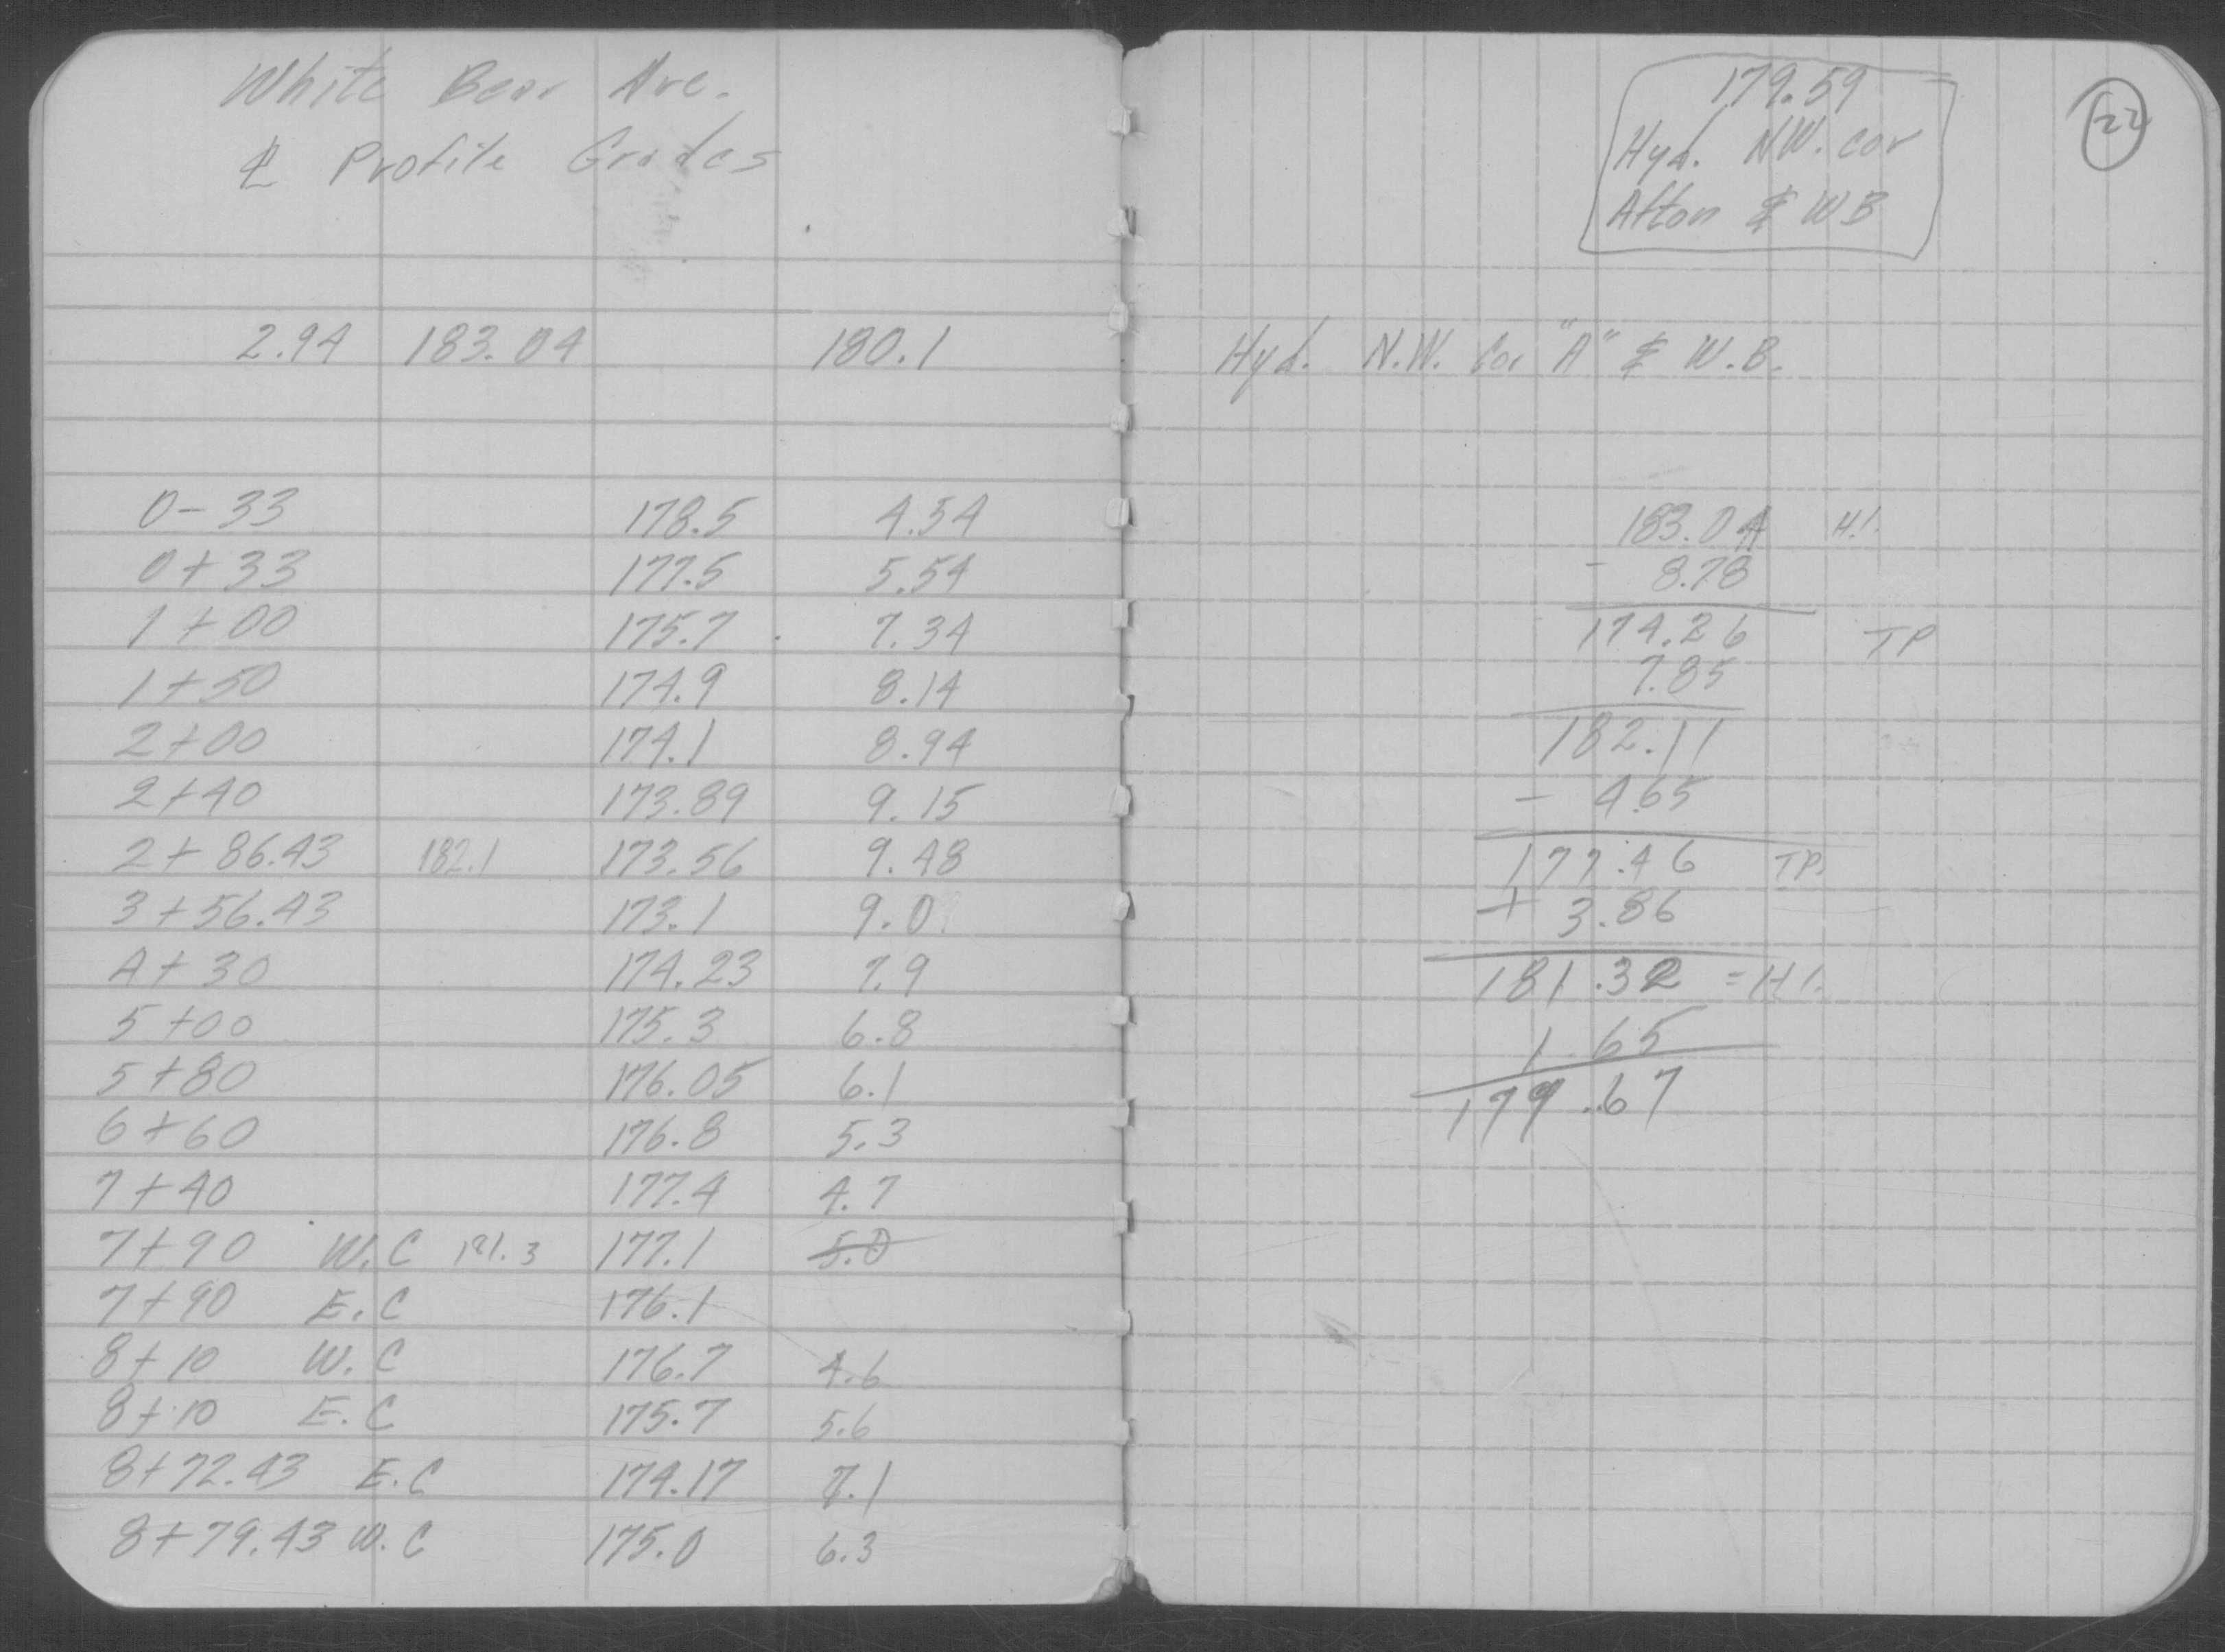 White Bear Ave.
℄ Profile Grades
2.94 183.04 180.1
0-33 178.5 4.54
0+33 177.5 5.54
1+00 175.7 7.34
1+50 174.9 8.14
2+00 174.1 8.94
2+40 173.89 9.15
2+86.43 182.1 173.56 9.48
3+56.43 173.1 9.0
4+30 174.23 7.9
5+00 175.3 6.8
5+80 176.05 6.1
6+60 176.8 5.3
7+40 177.4 4.7
7+90 W.C 181.3 177.1 5.0
7+90 E.C 176.1
8+10 W.C 176.7 4.6
8+10 E.C 175.7 5.6
8+72.43 E.C 174.17 7.1
8+79.43 W.C 175.0 6.3
22
179.59
Hyd. NW. cor
Afton & WB
Hyd. N.W. Cor "A" & W.B.
183.04 H.I.
- 8.78
174.26 TP
7.85
182.11
- 4.65
177.46 TP
+ 3.86
181.32 = H.I.
1.65
179.67